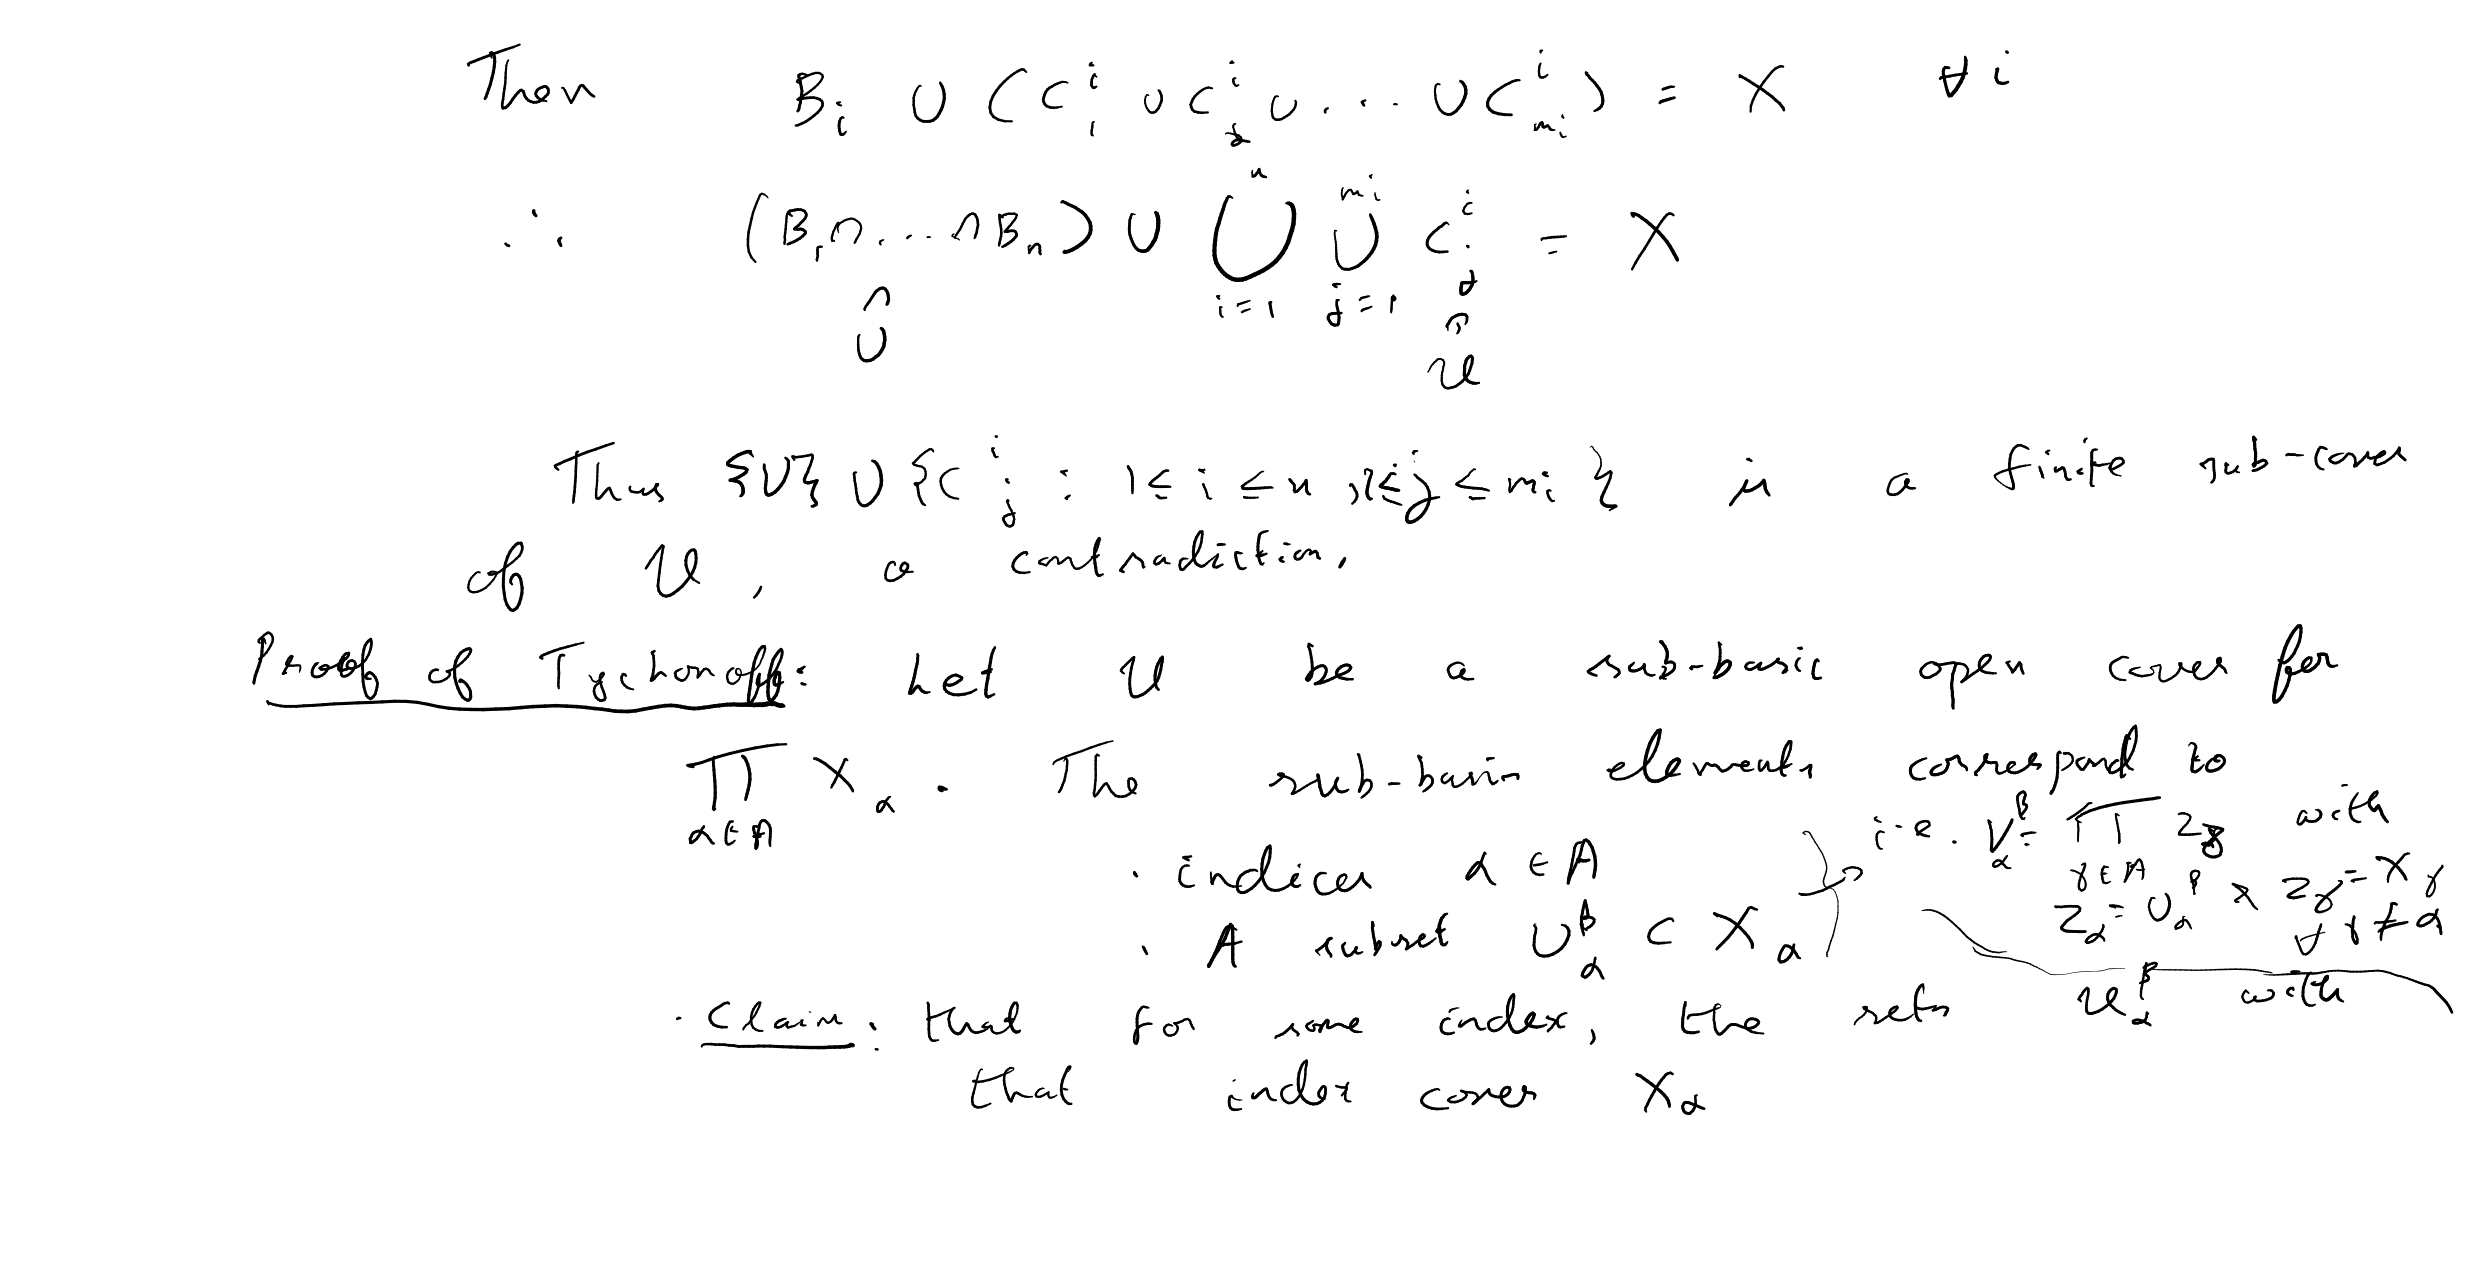 Then B_i ∪ (C^i_1 ∪ C^i_2 ∪ .... ∪ C^i_{m_i}) = X ∀ i
∴ (B_1 ∩ .... ∩ B_n) ∪ ⋃_{i=1}^{n} ⋃_{j=1}^{m_i} C^i_j = X
∩ ∩
U 𝒰
Thus {U} ∪ {C^i_j : 1 ≤ i ≤ n, 1 ≤ j ≤ m_i} is a finite sub-cover
of 𝒰, a contradiction.
Proof of Tychonoff: Let 𝒰 be a sub-basic open cover for
∏_{α∈A} X_α. The sub-basis elements correspond to
· indices α ∈ A
· A subset U^β_α ⊂ X_α
i.e. V^β_α = ∏_{γ∈A} Z_γ with
Z_α = U^β_α & Z_γ = X_γ
∀ γ ≠ α
· Claim: that for some index, the sets 𝒰^β_α with
that index cover X_α